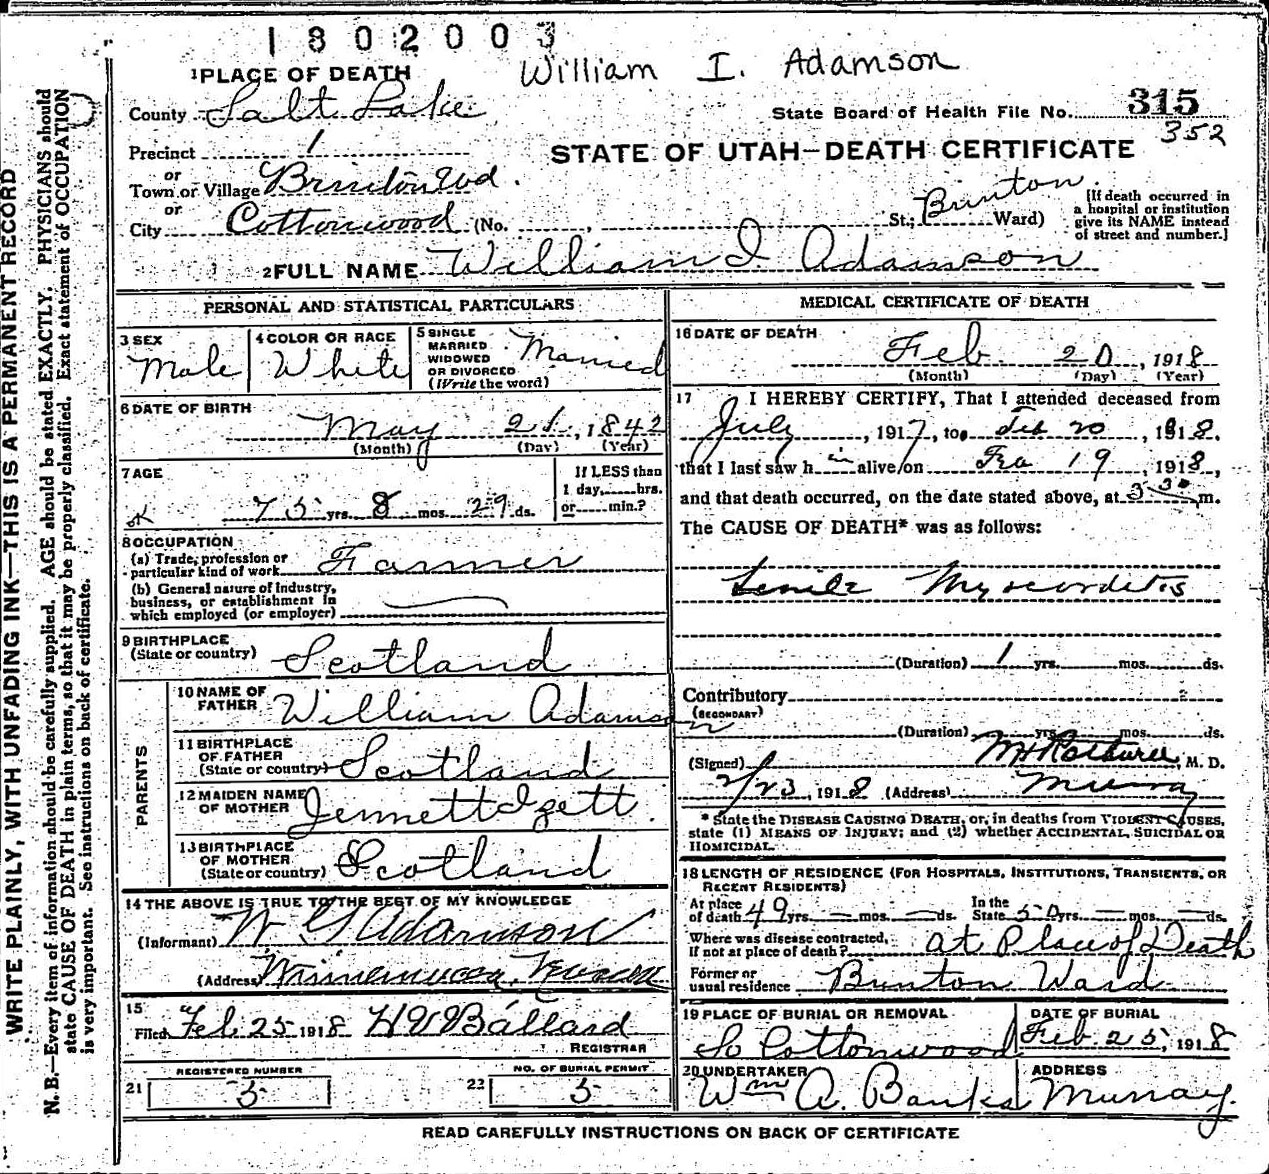 1802003
William I. Adamson
1 PLACE OF DEATH
County Salt Lake
State Board of Health File No. 315
352
Precinct 1
STATE OF UTAH—DEATH CERTIFICATE
or
Town or Village Brinton Wd.
or
City Cottonwood (No. St.; Brinton Ward)
[If death occurred in a hospital or institution give its NAME instead of street and number.]
2 FULL NAME William I Adamson
PERSONAL AND STATISTICAL PARTICULARS
3 SEX
Male
4 COLOR OR RACE
White
5 SINGLE
MARRIED
WIDOWED
OR DIVORCED
(Write the word)
Married
6 DATE OF BIRTH
May 21, 1842
(Month) (Day) (Year)
7 AGE
75 yrs. 8 mos. 29 ds.
If LESS than
1 day,......hrs.
or......min.?
8 OCCUPATION
(a) Trade, profession or
particular kind of work Farmer
(b) General nature of industry,
business, or establishment in
which employed (or employer)
9 BIRTHPLACE
(State or country) Scotland
PARENTS
10 NAME OF
FATHER William Adamson
11 BIRTHPLACE
OF FATHER
(State or country) Scotland
12 MAIDEN NAME
OF MOTHER Jennett Izett.
13 BIRTHPLACE
OF MOTHER
(State or country) Scotland
14 THE ABOVE IS TRUE TO THE BEST OF MY KNOWLEDGE
(Informant) W G Adamson
(Address) Winnemucca, Nevada
15
Filed Feb. 25 1918 H W Ballard
REGISTRAR
REGISTERED NUMBER
21 5
NO. OF BURIAL PERMIT
22 5
MEDICAL CERTIFICATE OF DEATH
16 DATE OF DEATH
Feb. 20, 1918
(Month) (Day) (Year)
17 I HEREBY CERTIFY, That I attended deceased from
July, 1917, to Feb 20, 1918.
that I last saw him alive on Feb 19, 1918,
and that death occurred, on the date stated above, at 3 30 m.
The CAUSE OF DEATH* was as follows:
Senile Myocarditis
(Duration) 1 yrs. mos. ds.
Contributory
(SECONDARY)
(Duration) yrs. mos. ds.
(Signed) M. D.
2/23, 1918 (Address) Murray
* State the DISEASE CAUSING DEATH, or, in deaths from VIOLENT CAUSES,
state (1) MEANS OF INJURY; and (2) whether ACCIDENTAL, SUICIDAL OR
HOMICIDAL.
18 LENGTH OF RESIDENCE (FOR HOSPITALS, INSTITUTIONS, TRANSIENTS, OR
RECENT RESIDENTS)
At place
of death 49 yrs. — mos. — ds.
In the
State 50 yrs. — mos. — ds.
Where was disease contracted,
If not at place of death? at Place of Death
Former or
usual residence Brinton Ward
19 PLACE OF BURIAL OR REMOVAL
So Cottonwood
DATE OF BURIAL
Feb. 25, 1918
20 UNDERTAKER
Wm A. Banks
ADDRESS
Murray.
READ CAREFULLY INSTRUCTIONS ON BACK OF CERTIFICATE
WRITE PLAINLY, WITH UNFADING INK—THIS IS A PERMANENT RECORD
N. B.—Every item of information should be carefully supplied. AGE should be stated EXACTLY. PHYSICIANS should
state CAUSE OF DEATH in plain terms, so that it may be properly classified. Exact statement of OCCUPATION
is very important. See instructions on back of certificate.